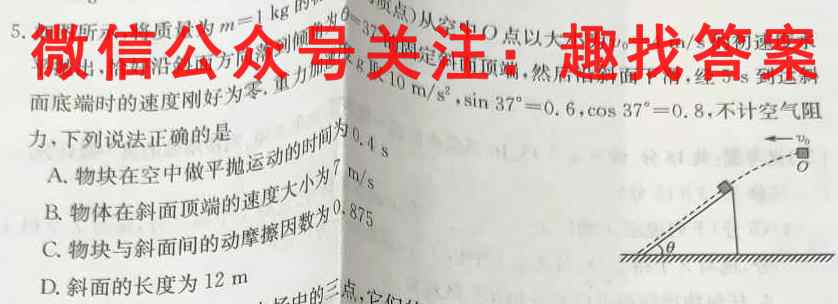 5. 如图所示,将质量为m=1 kg的 点)从空中O点以大 v₀ m/s 初速度水
微信公众号关注:趣找答案
出, 沿斜面方向落到倾 为θ=37°的固定斜面顶端,然后沿斜面下滑,经 s到达斜
面底端时的速度刚好为零.重力加速度g取10 m/s²,sin 37°=0.6,cos 37°=0.8,不计空气阻
力,下列说法正确的是
A. 物块在空中做平抛运动的时间为0.4 s
B. 物体在斜面顶端的速度大小为7 m/s
C. 物块与斜面间的动摩擦因数为0.875
D. 斜面的长度为12 m
v₀
O
θ
中的三点,它们